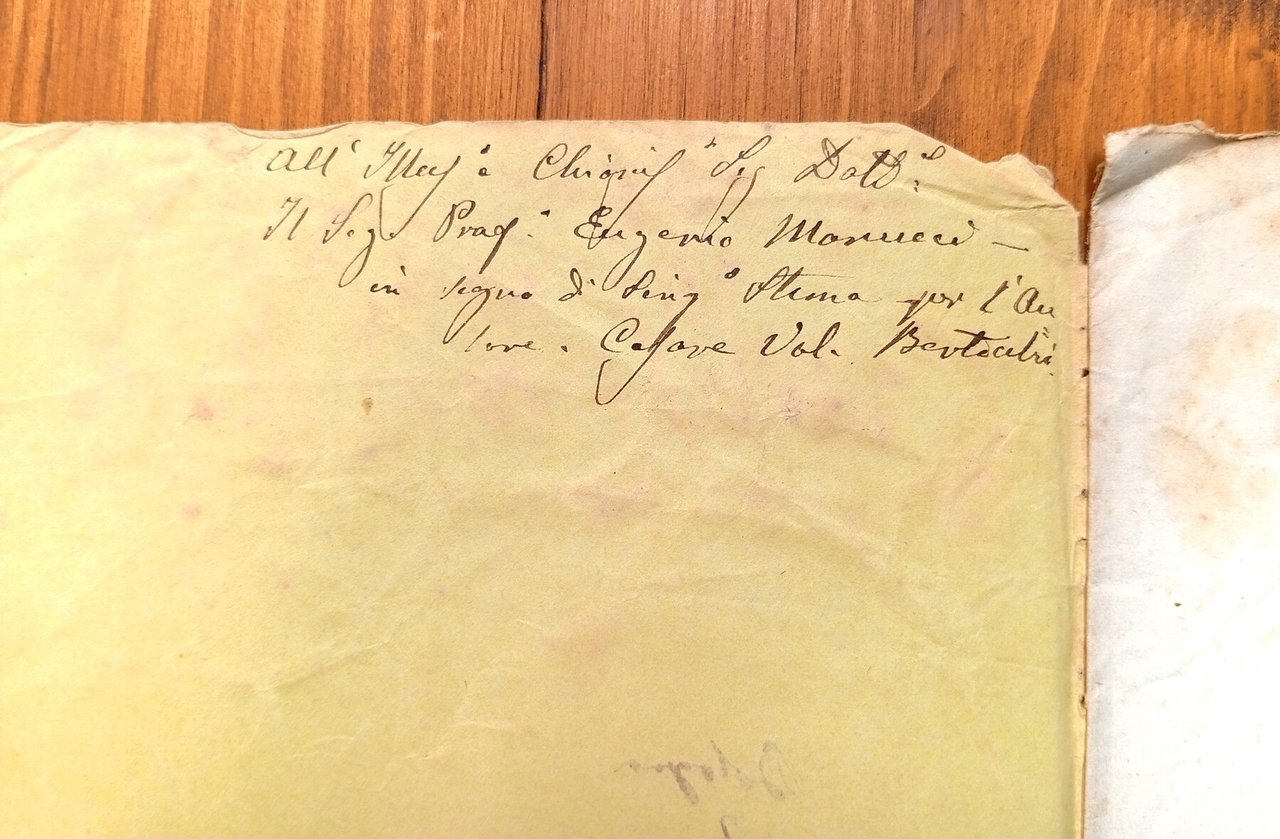 All' Ill.ss° e Chiariss° Sig Dott.e
Il Sig. Prof.e Eugenio Manucci —
in segno di Sing.e Stima per l'Au
tore. Cesare Val. Bertocchi